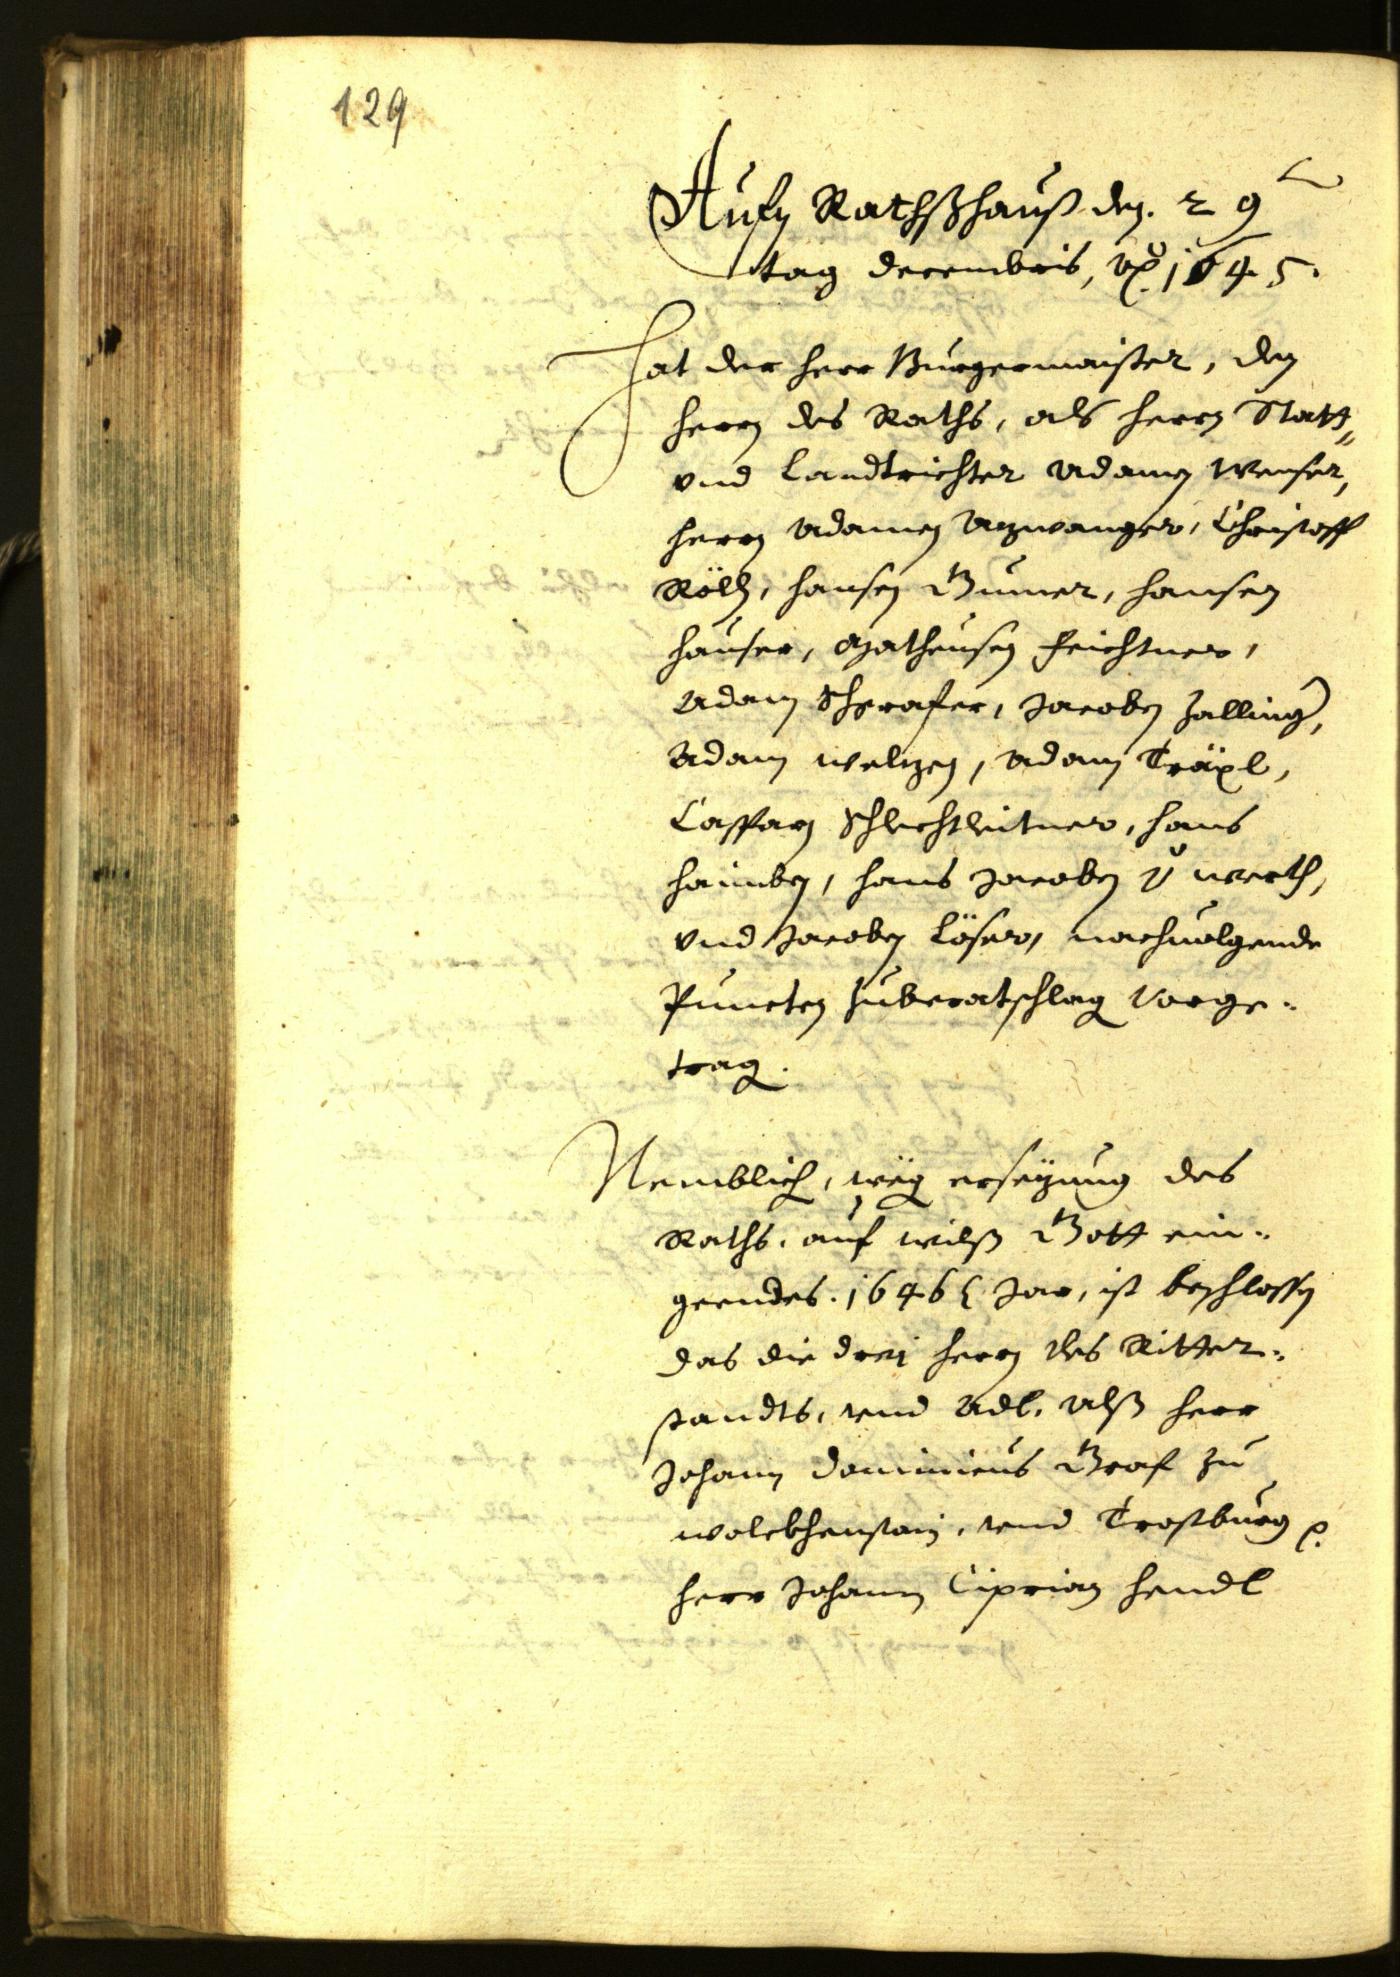 129
Aufm Rathßhauß den. 29
tag decembris, Ao. 1645.
Hat der herr Burgermaister, den
herrn des Raths, als herrn Statt„
vnd Landtrichter Adamen Wenser,
herrn Adamen Azwanger, Christoff
Röckh, hansen Gumer, hansen
Hauser, Matheusen Feichtner,
Adam Schgrafer, Jacoben Zalling,
Adam welzen, Adam Träxl,
Casparn Schlechtleitner, hans
haimben, hans Jacoben v werth,
vnd Jacoben Löser, nachuolgende
Puncten Zuberatschlag Vorge„
trag.
Nemblich, weg ersezung des
Raths, auf wilß Gott ein„
geendes. 1646 Jar, ist beschlossen
das die drej herrn des Ritter„
standts, vnd Adl, alß herr
Johann Dominicus Graf Zu
wolckhenstain, vnd Trostburg
herr Johann Ciprian hendl